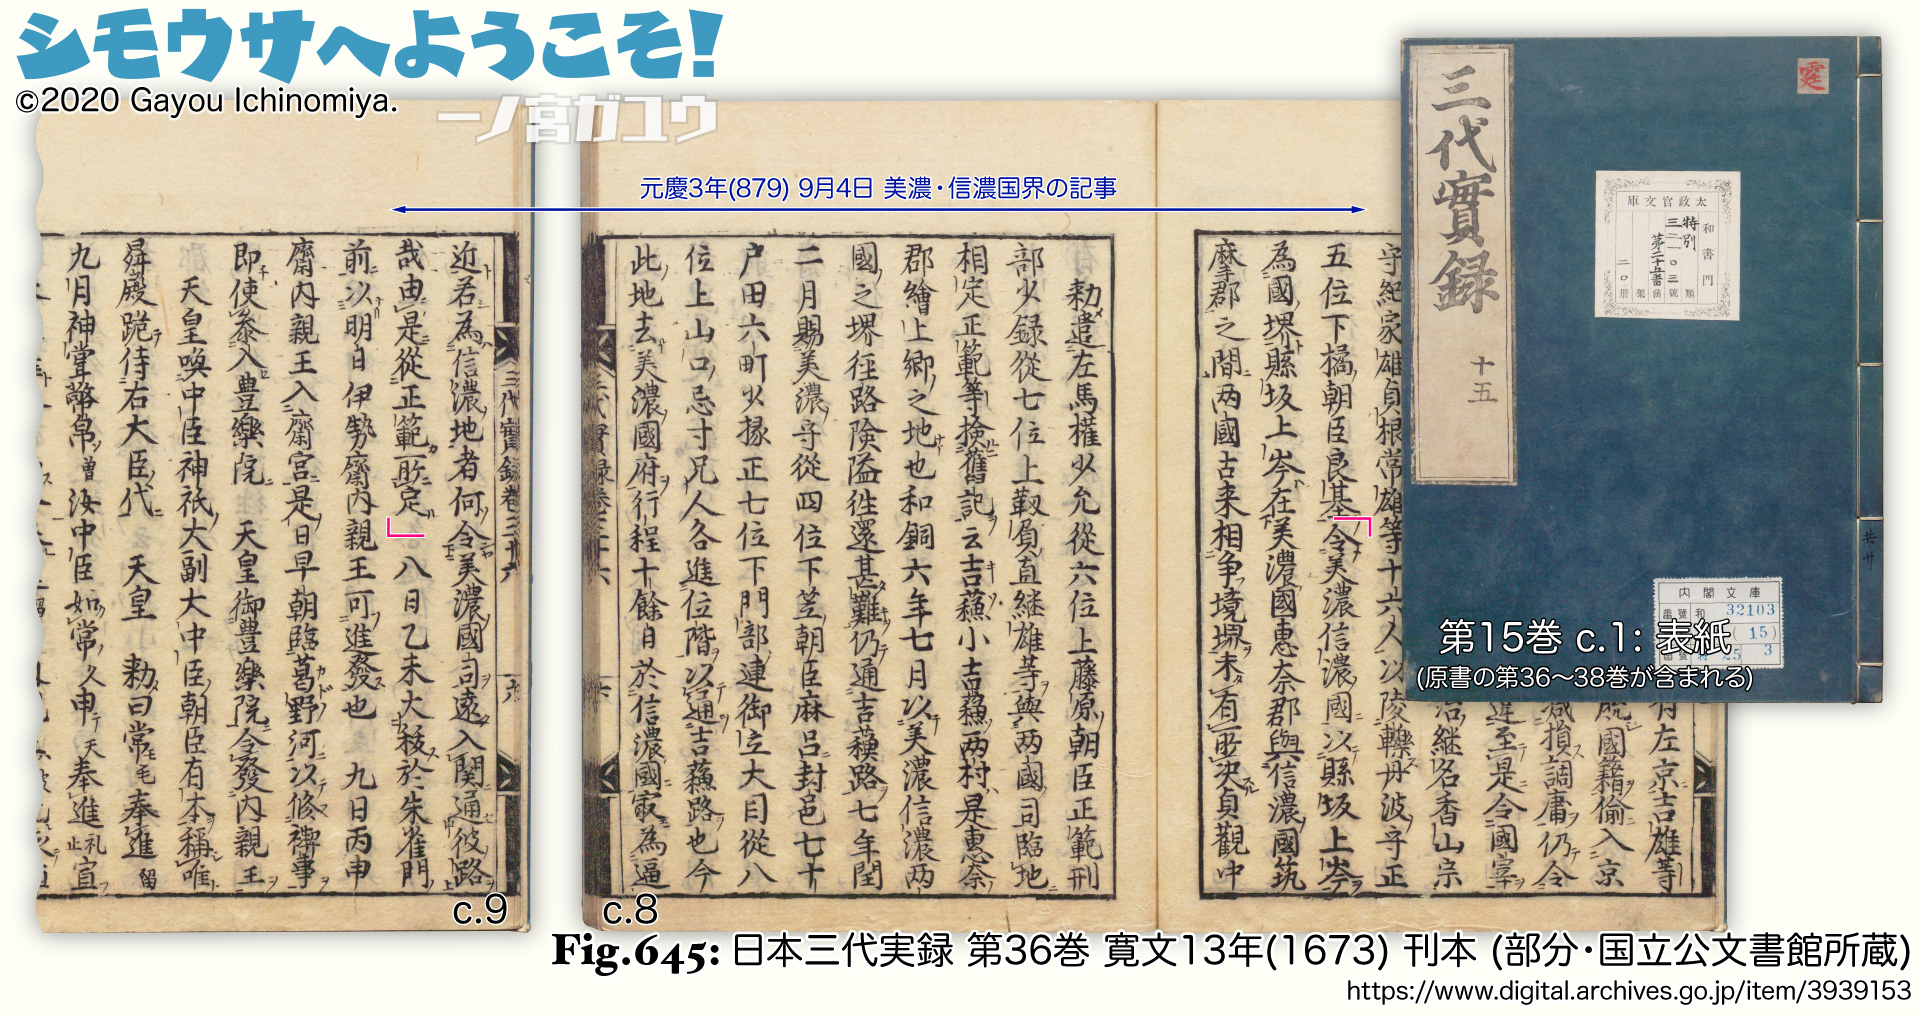 シモウサへようこそ!
©2020 Gayou Ichinomiya.
一ノ宮ガユウ
元慶3年(879) 9月4日 美濃・信濃国界の記事
有左京吉雄等
脱國籍偷入京
減損調庸仍令
違至是令國掌
治継名香山宗
守紀家雄貞根常雄等十六人以陵轢丹波守正
五位下橘朝臣良基令美濃信濃國以縣坂上岑
為國堺縣坂上岑在美濃國惠奈郡與信濃國筑
摩郡之間兩國古来相争境堺未有所决貞觀中
勅遣左馬權少允從六位上藤原朝臣正範刑
部少録從七位上靱負直継雄等與兩國司臨地
相定正範等撿舊記云吉蘓小吉蘓兩村是惠奈
郡繪上郷之地也和銅六年七月以美濃信濃兩
國之堺徑路險隘徃還甚難仍通吉蘓路七年閏
二月賜美濃守從四位下笠朝臣麻呂封邑七十
户田六町少掾正七位下門部連御立大目從八
位上山口忌寸兄人各進位階以通吉蘓路也今
此地去美濃國府行程十餘日於信濃國㝡為逼
c.8
三代實録卷三十六
近若為信濃地者何令美濃國司遠入關通彼路
哉由是從正範所定 八日乙未大秡於朱雀門
前以明日伊勢齋内親王可進發也 九日丙申
齋内親王入齋宮是日早朝臨葛野河以修禊事
即使參入豊樂院 天皇御豊樂院令發内親王
天皇喚中臣神祇大副大中臣朝臣有本稱唯
舜殿跪侍右大臣代 天皇 勅曰常毛奉進留
九月神甞幣帛曽汝中臣如常久申天奉進礼止宣
c.9
三代實録 十五
太政官文庫
和書門
特別
三二一〇三
類 號 函 架 册
二〇
共廿
内閣文庫
番號 和 32103
15
3
第15巻 c.1: 表紙
(原書の第36〜38巻が含まれる)
Fig.645: 日本三代実録 第36巻 寛文13年(1673) 刊本 (部分・国立公文書館所蔵)
https://www.digital.archives.go.jp/item/3939153